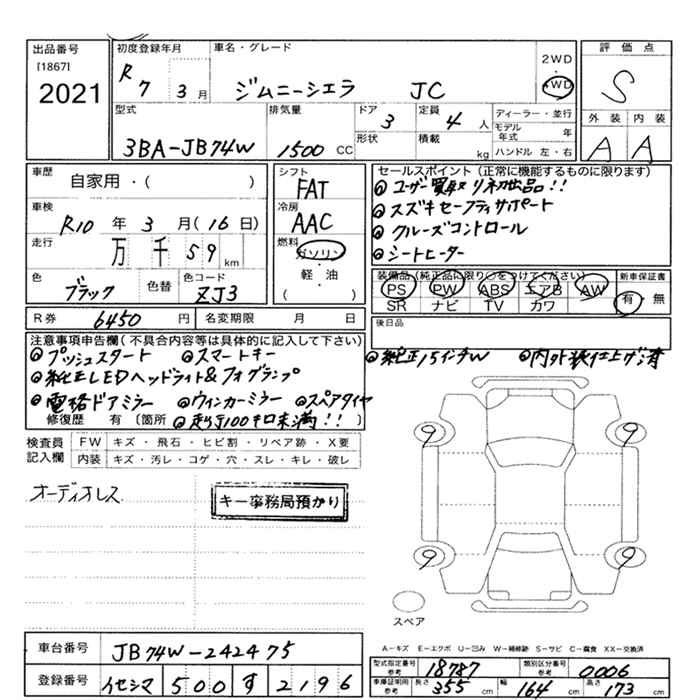 出品番号
[1867]
2021
初度登録年月
R7 3月
車名・グレード
ジムニーシエラ JC
2WD
4WD
評価点
S
外装 内装
A A
型式
3BA-JB74W
排気量
1500 CC
ドア
3
形状
定員
4 人
積載
kg
ディーラー・並行
モデル年式 年
ハンドル 左・右
車歴
自家用・( )
車検
R10 年 3 月( 16 日)
走行
万 千 59 km
色
ブラック
色替
色コード
ZJ3
シフト
FAT
冷房
AAC
燃料
ガソリン
・
軽・油
( )
セールスポイント(正常に機能するものに限ります)
◎ユーザー買取り初出品!!
◎スズキセーフティサポート
◎クルーズコントロール
◎シートヒーター
装備品(純正品に限り○をつけてください)
PS PW ABS エアB AW
SR ナビ TV カワ
新車保証書
有・無
R券 6450 円
名変期限 月 日
後日品
◎純正15インチAW ◎内外装仕上げ済
注意事項申告欄(不具合内容等は具体的に記入して下さい)
◎プッシュスタート ◎スマートキー
◎純正LEDヘッドライト&フォグランプ
◎電格ドアミラー ◎ウィンカーミラー ◎スペアタイヤ
修復歴 有 〔箇所 ◎走行100キロ未満!! 〕
検査員記入欄
FW キズ・飛石・ヒビ割・リペア跡・X要
内装 キズ・汚レ・コゲ・穴・スレ・キレ・破レ
オーディオレス
キー事務局預かり
9 9
9 9
スペア
A−キズ E−エクボ U−凹み W−補修跡 S−サビ C−腐食 XX−交換済
車台番号 JB74W-242475
登録番号 イセシマ 500 す 2196
型式指定番号 参考 18787
類別区分番号 参考 0006
車庫証明用 参考 長さ 355 cm 幅 164 cm 高さ 173 cm